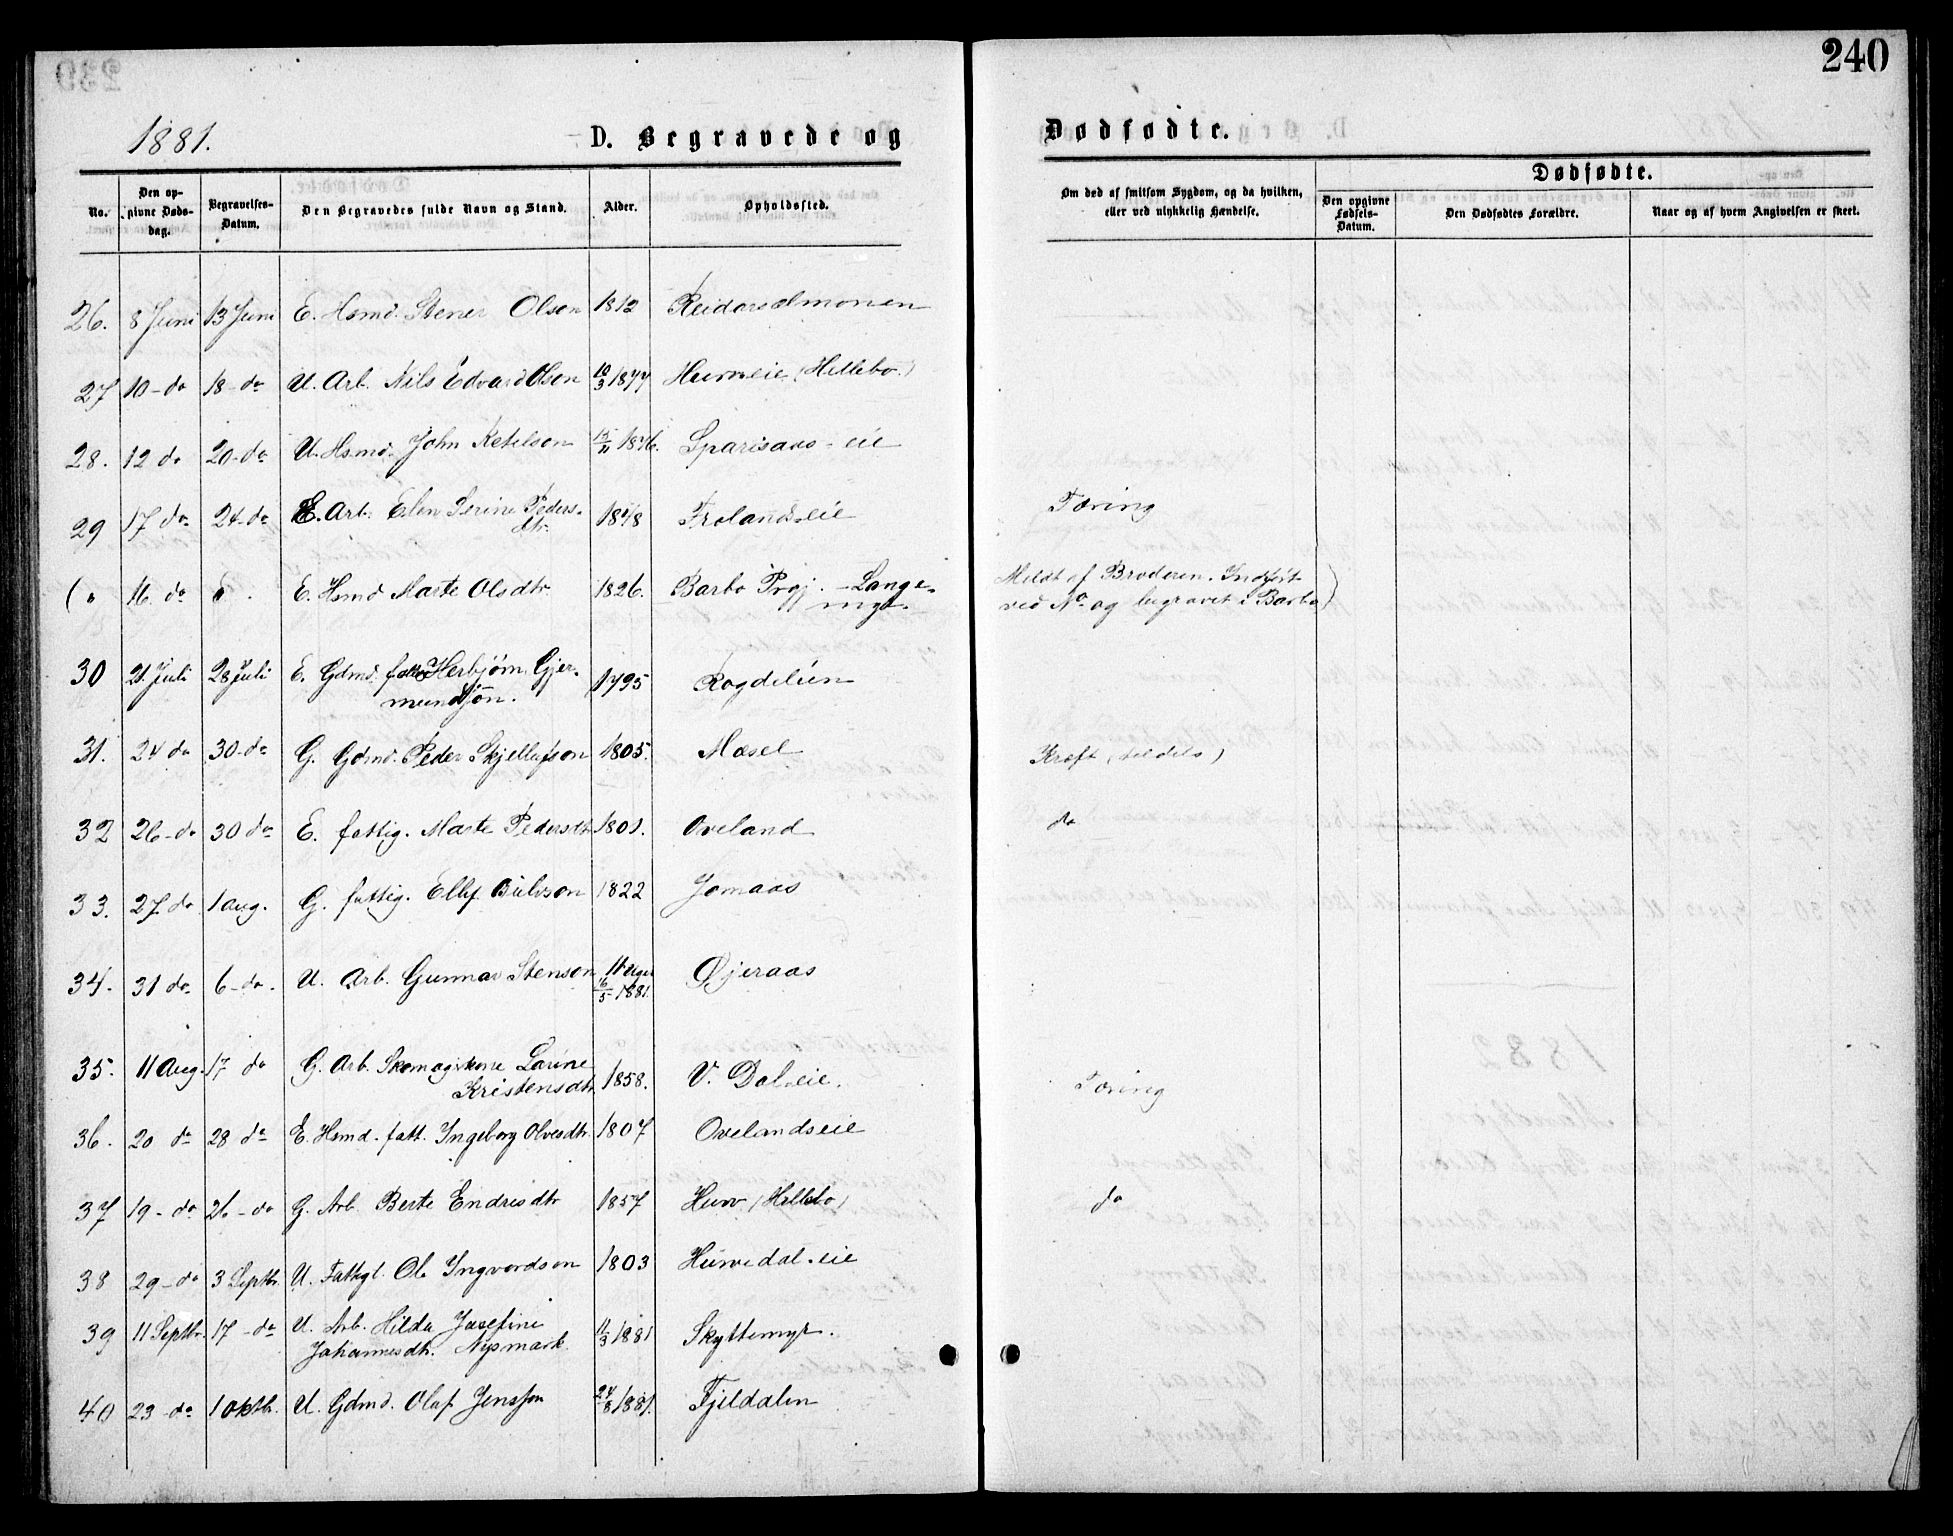 240
1881.
D. Begravede og Dødfødte.
No. Den opgivne Dødsdag. Begravelses-Datum. Den Begravedes fulde Navn og Stand. Alder. Opholdssted. Om død af smitsom Sygdom, og da hvilken, eller ved ulykkelig Hændelse. Dødfødte. Den opgivne Fødsels-Datum. Den Dødfødtes Forældre. Naar og af hvem Angivelsen er skeet.
26. 8 Juni 13 Juni E. Hsmd. Stener Olson 1812 Reidarsdmonen
27 10 - do 18 - do U. Arb. Nils Edvard Olson 10/3 1877 Hurveeie (Hellebo)
28. 12 do 20 - do U. Hsmd. John Ketelson 15/11 1876. Sparisaas - eie
29 17 do 24 - do E. Arb. Elen Serine Peders- 1878 Frolandseie Tæring
dtr.
( " 16 do " E. Hsmd Marte Olsdtr 1826. Barbo Prgj. - Lange- Meldt af Broderen. Indført
ved No og begravet i Barbo)
30 21 Juli 28 Juli E. Gdmd. Herbjørn Gjer- 1795 Rogdelien
mundsøn.
31. 24 do 30 - do G. Gdmd. Peder Skjellufson 1805. Mæsel Kræft (tildels)
32 26 - do 30 do E. fattig. Marte Pedersdtr 1801. Oveland do
33. 27 do 1 aug. G. fattig. Ellef 1822 Jomaas
34. 31 do 6 - do. U. Arb. Gunnar Stenson 11 uger Øjeraas
16/5 1881.
35. 11 Aug. 17 do G. Arb. Skomagerkone Larine V. Dal.eie. Tæring
Kristensdtr 1858.
36. 20 do 28 do E. Hsmd. fatt. Ingeborg Olvesdtr. 1807 Ovelandseie
37 19 - do 26 - do G. Arb. Berte Endresdtr 1857 Hurv (Hellebo) do
38 29 - do 3 Septbr. U. Fattgl. Ole Ingvordson 1803 Hurvedal.eie
39 11 Septbr. 17 - do U. Arb. Hilda Josefine 11/3 1881 Skyttemyr.
Johannesdtr. Nysmark.
40 23 - do 1 Oktbr. U. Gdmd. Olaf Jensson 24/8 1881. Fjeldalen